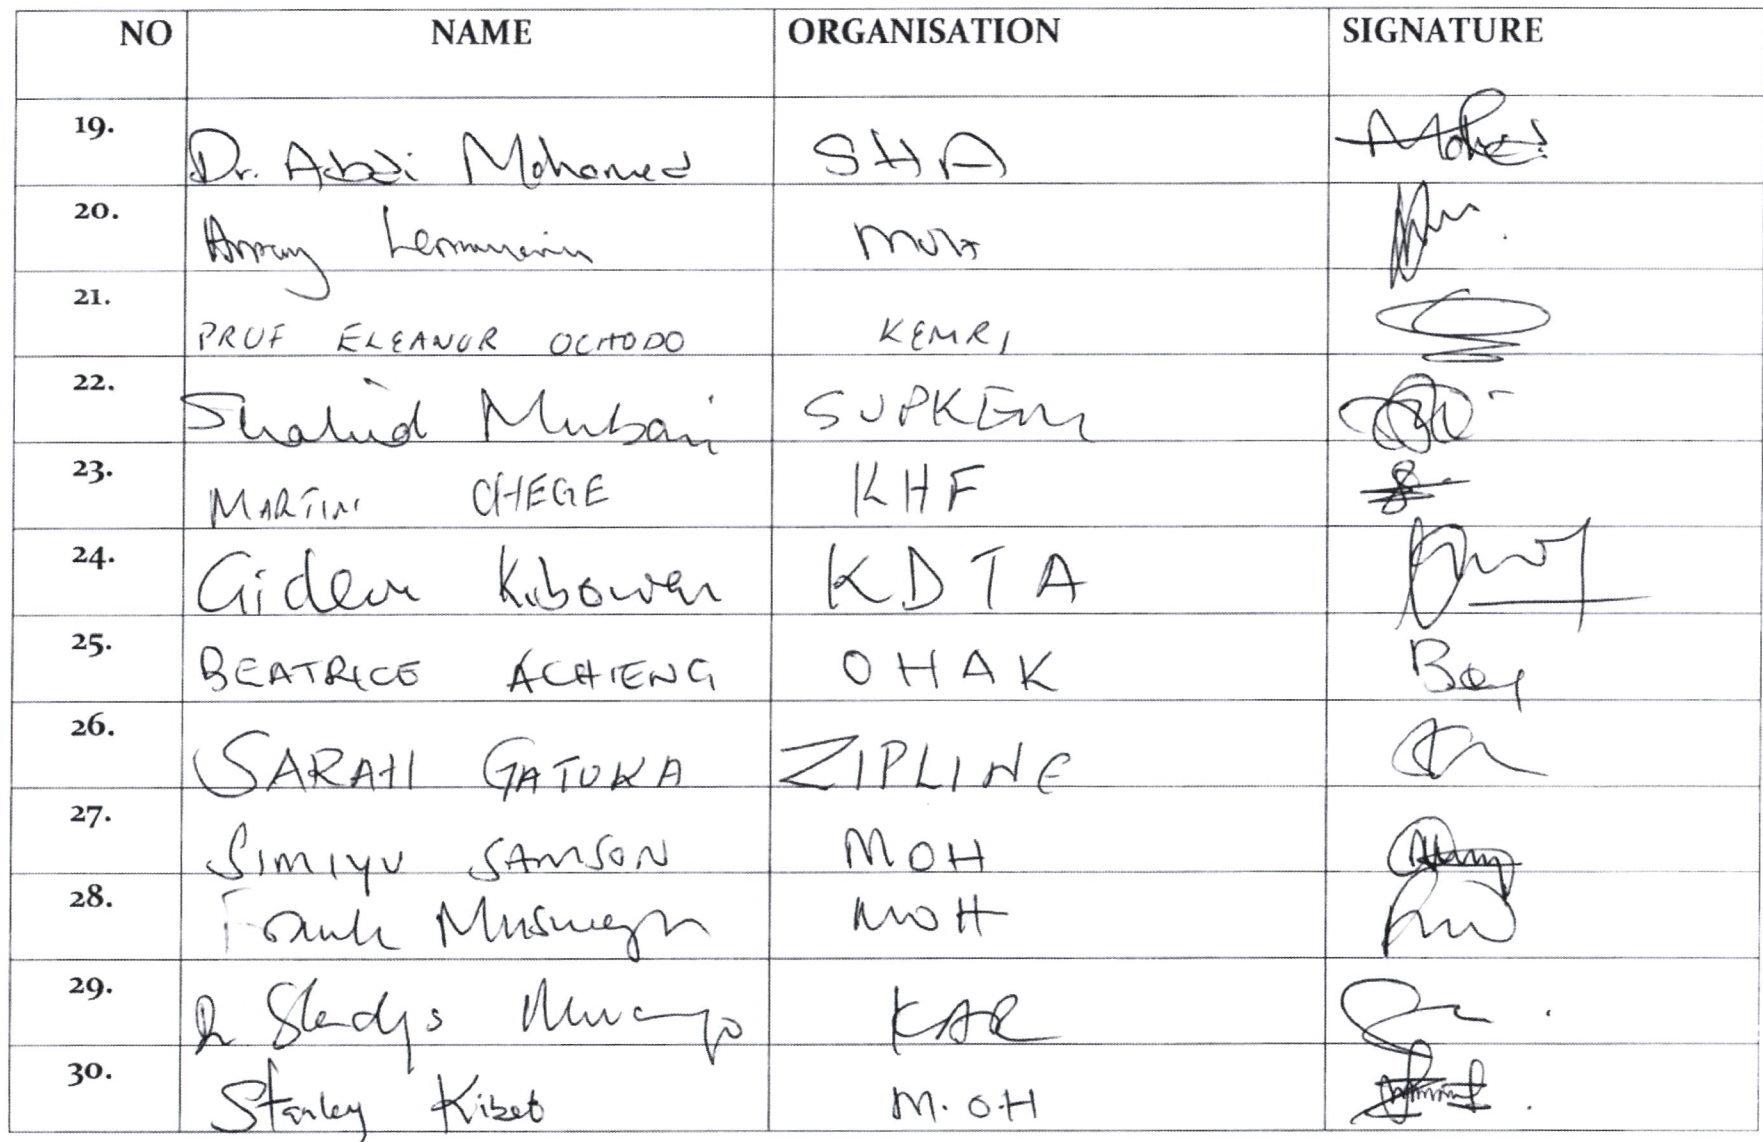 NO NAME ORGANISATION SIGNATURE
19. Dr. Abdi Mohamed SHA
20. MOH
21. PROF ELEANOR OCHODO KEMRI
22. Shahid SUPKEM
23. MARTIN CHEGE KHF
24. Gideon Kibowen KDTA
25. BEATRICE ACHIENG OHAK
26. SARAH GATUKA ZIPLINE
27. SIMIYU SAMSON MOH
28. Frank MOH
29. Dr Gladys Mwango KAR
30. Stanley Kibet M.OH